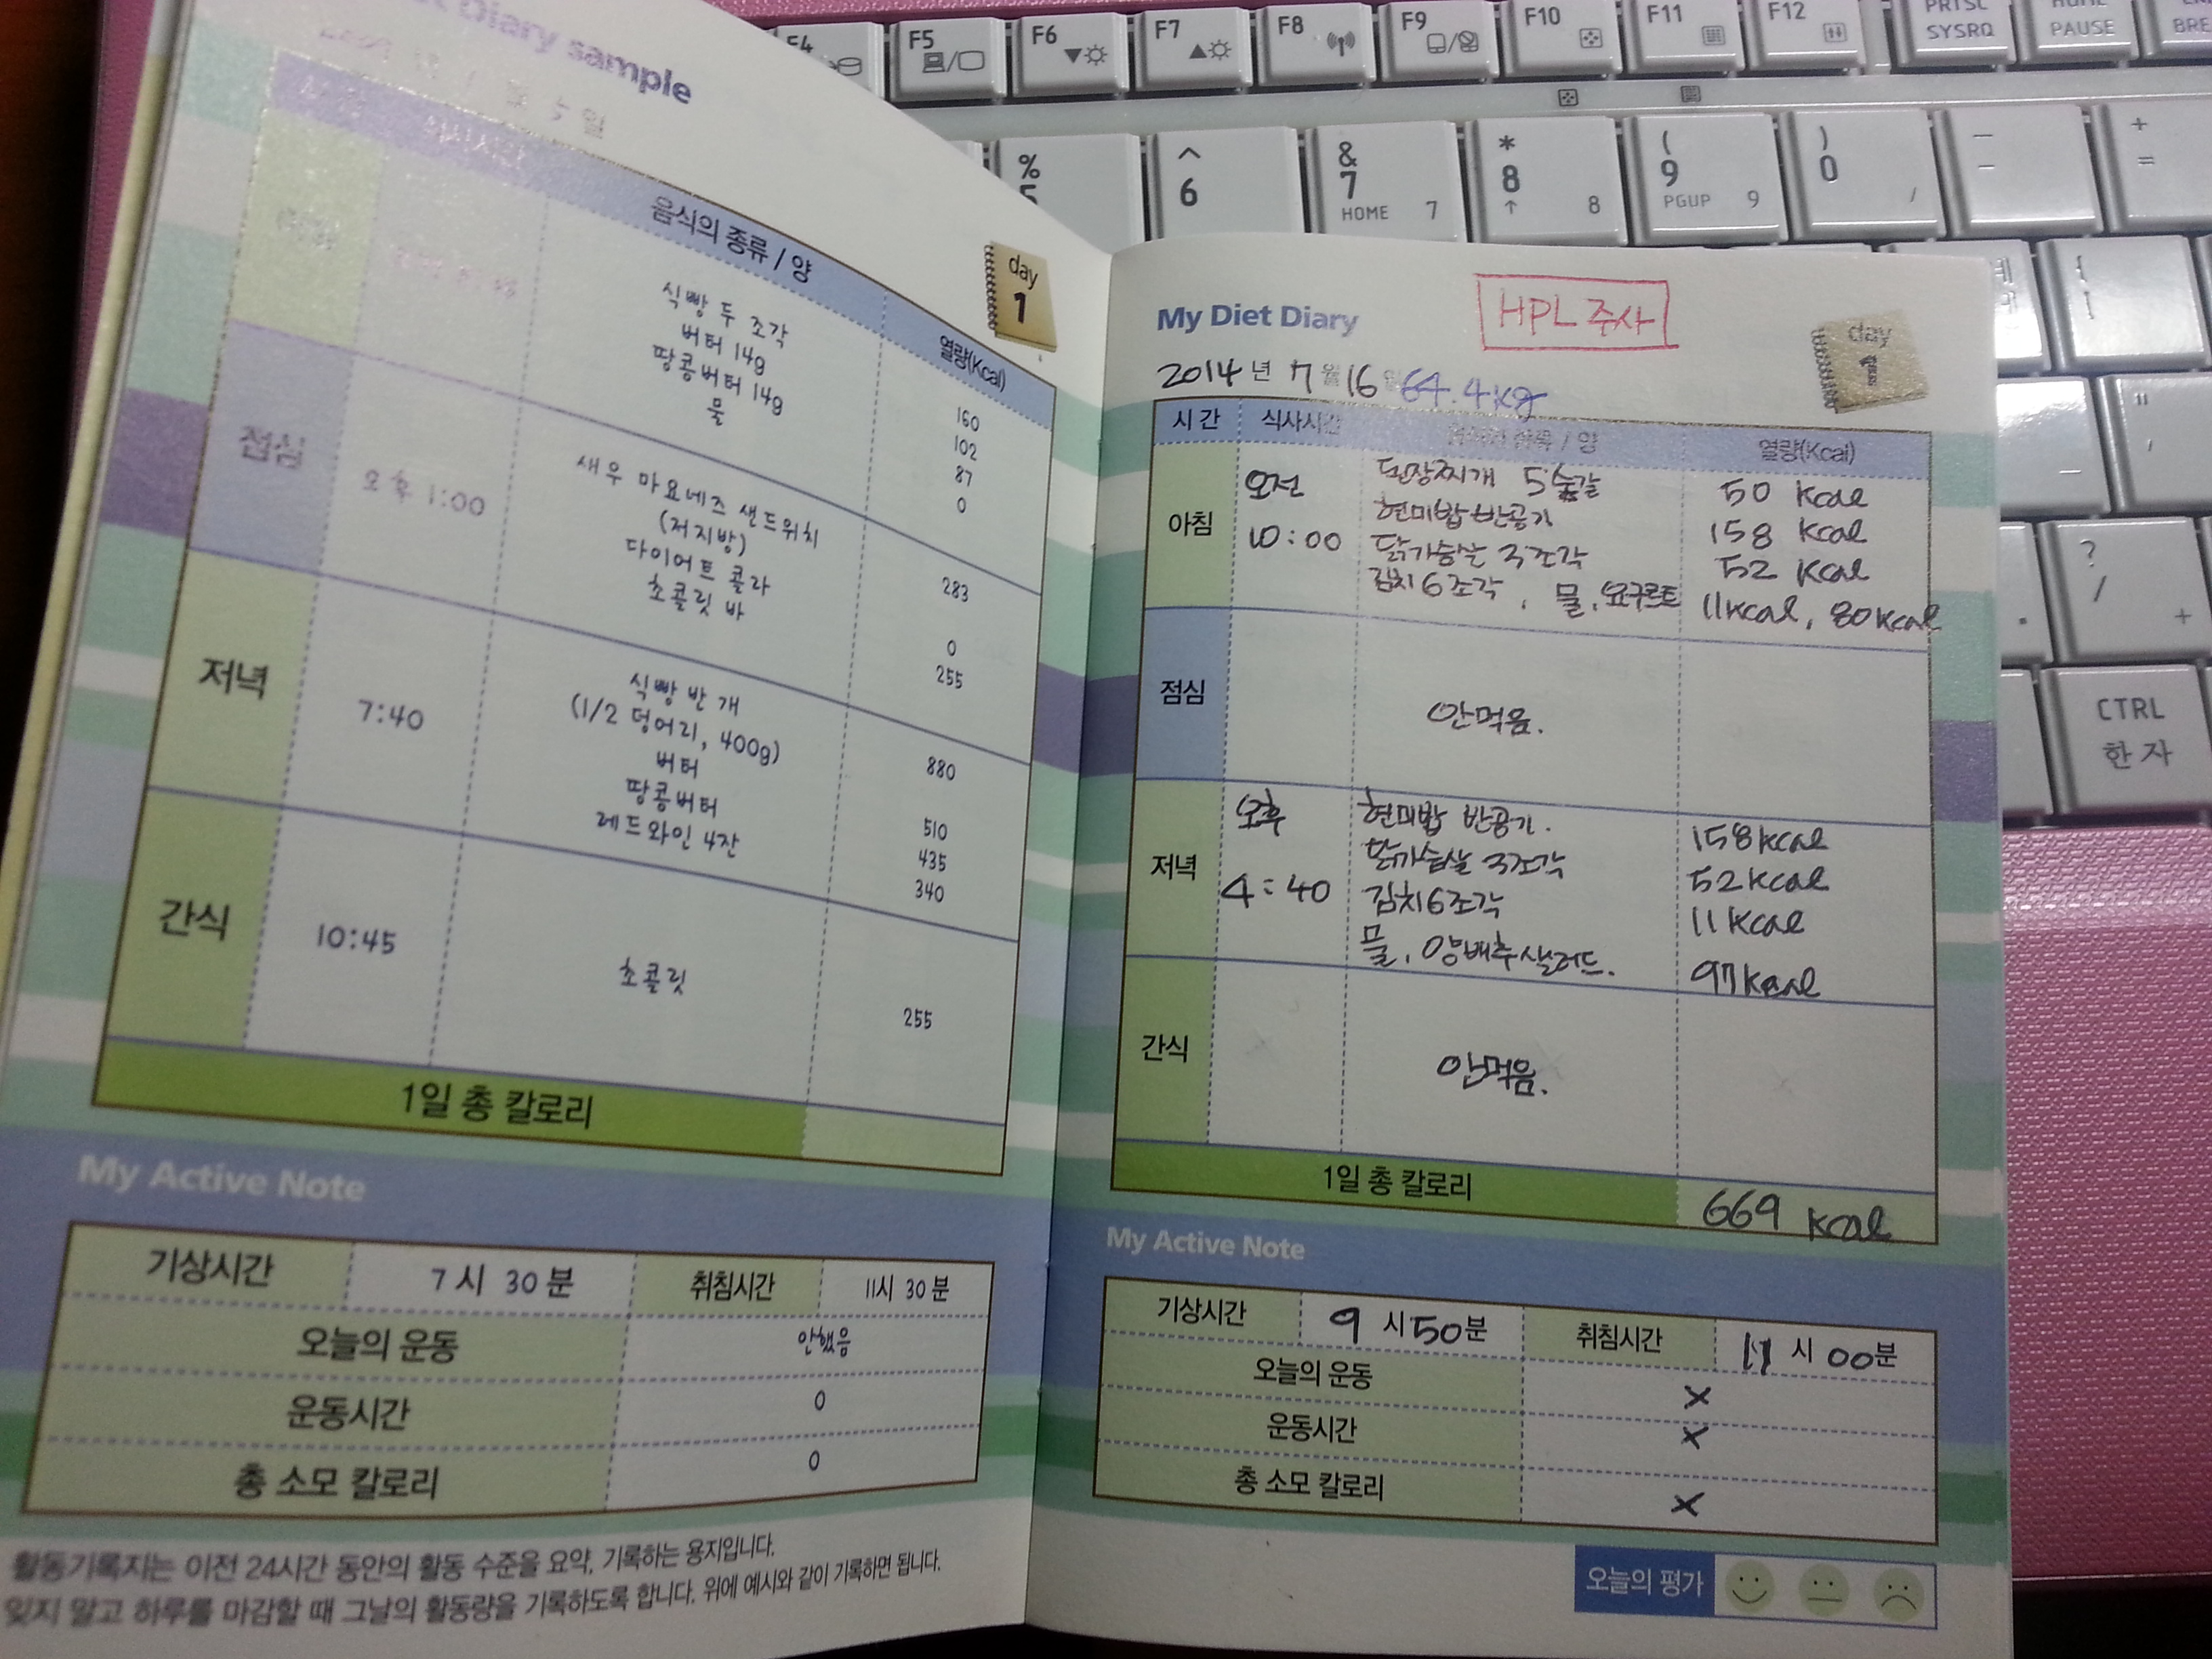 Diary sample
일
음식의 종류 / 양
열량(Kcal)
day
1
식빵 두 조각
160
버터 14g
102
땅콩버터 14g
87
물
0
점심
오후 1:00
새우 마요네즈 샌드위치
(저지방)
283
다이어트 콜라
0
초콜릿 바
255
저녁
7:40
식빵 반 개
(1/2 덩어리, 400g)
880
버터
510
땅콩버터
435
레드와인 4잔
340
간식
10:45
초콜릿
255
1일 총 칼로리
My Active Note
기상시간
7시 30분
취침시간
11시 30분
오늘의 운동
안했음
운동시간
0
총 소모 칼로리
0
활동기록지는 이전 24시간 동안의 활동 수준을 요약, 기록하는 용지입니다.
잊지 말고 하루를 마감할 때 그날의 활동량을 기록하도록 합니다. 위에 예시와 같이 기록하면 됩니다.
My Diet Diary
HPL 주사
day
1
2014년 7월 16일 64.4kg
시간
식사시간
음식의 종류 / 양
열량(Kcal)
아침
오전
10:00
된장찌개 5숟갈
50 Kcal
현미밥 반공기
158 Kcal
닭가슴살 3조각
52 Kcal
김치 6조각, 물, 요구르트
11Kcal, 80Kcal
점심
안먹음.
저녁
오후
4:40
현미밥 반공기.
158Kcal
닭가슴살 3조각
52Kcal
김치6조각
11Kcal
물, 양배추샐러드.
97Kcal
간식
안먹음.
1일 총 칼로리
669 Kcal
My Active Note
기상시간
9시 50분
취침시간
11시 00분
오늘의 운동
X
운동시간
X
총 소모 칼로리
X
오늘의 평가
F4
F5
F6
F7
F8
F9
F10
F11
F12
PRTSC
SYSRQ
PAUSE
% 5
^ 6
& 7
HOME 7
* 8
8
( 9
PGUP 9
) 0
/
-
+
=
{
[
"
'
?
/
+
CTRL
한자